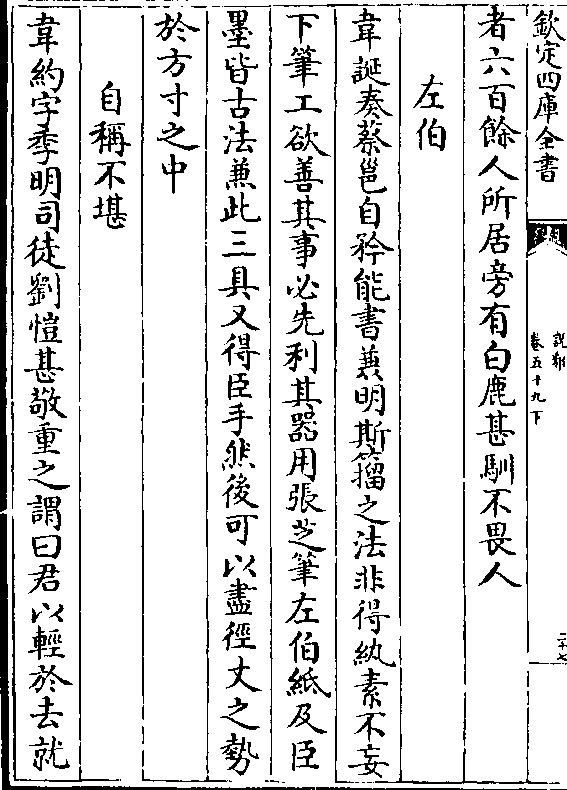 欽定四庫全書
說郛
卷五十九下
二十七
者六百餘人所居旁有白鹿甚馴不畏人
左伯
韋誕奏蔡邕自矜能書兼明斯籀之法非得紈素不妄
下筆工欲善其事必先利其器用張芝筆左伯紙及臣
墨皆古法兼此三具又得臣手然後可以盡徑丈之勢
於方寸之中
自稱不堪
韋約字季明司徒劉愷甚敬重之謂曰君以輕於去就